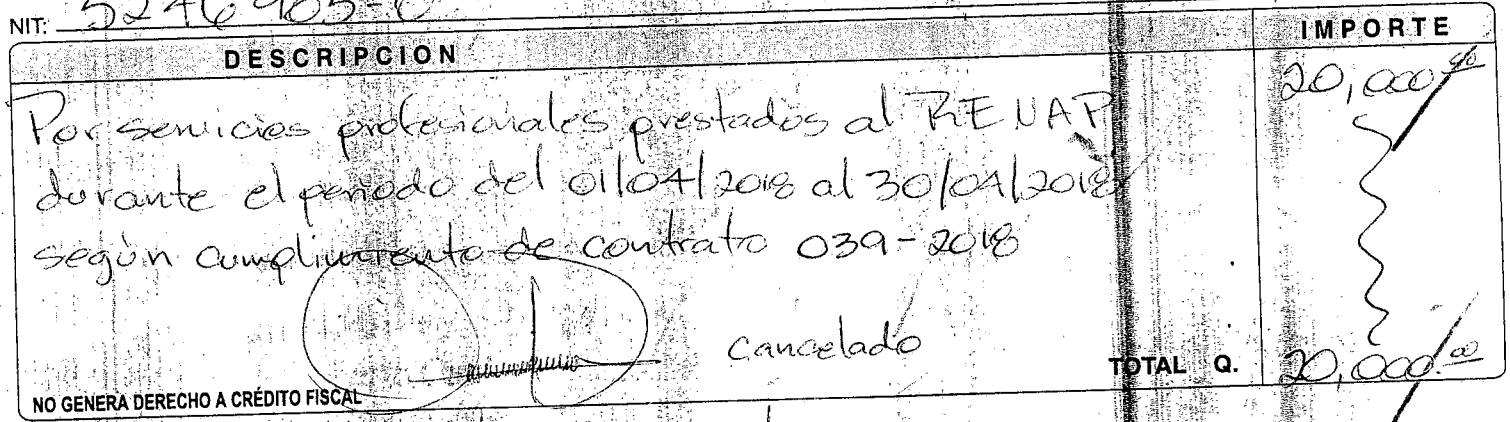 NIT: 5246905-6
DESCRIPCION IMPORTE
Por servicios profesionales prestados al RENAP 20,000.00
durante el periodo del 01/04/2018 al 30/04/2018
según cumplimiento de contrato 039-2018
cancelado
TOTAL Q. 20,000.00
NO GENERA DERECHO A CRÉDITO FISCAL